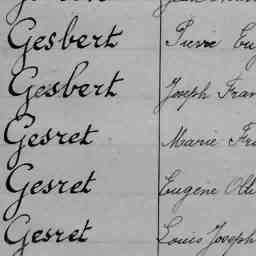 Gesbert Pierre
Gesbert Joseph
Gesret Marie
Gesret Eugène
Gesret Louis Joseph